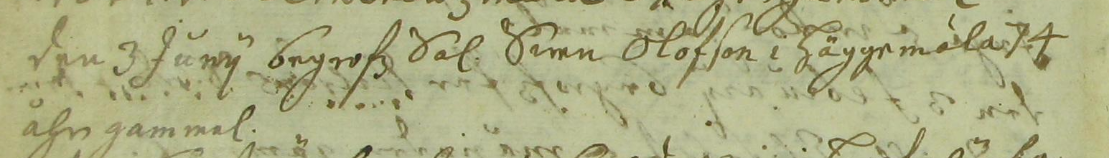 den 3 Junij begrofz Sal. Swen Olofson i Häggemåla 74
åhr gammal.